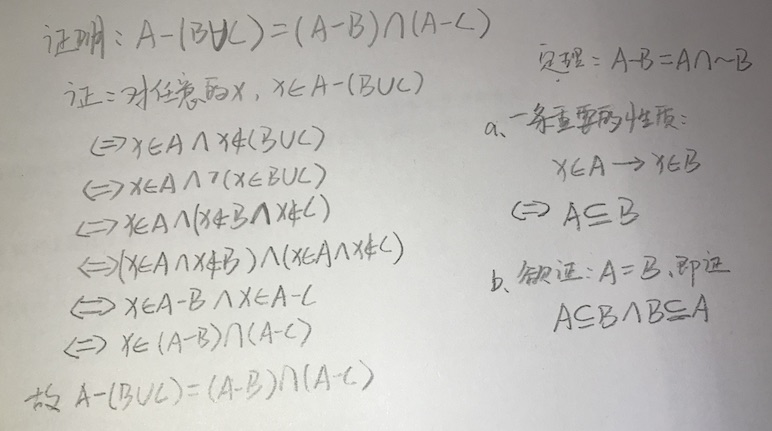 证明：A-(B∪C)=(A-B)∩(A-C)
证：对任意的x，x∈A-(B∪C)
⇔x∈A∧x∉(B∪C)
⇔x∈A∧¬(x∈B∪C)
⇔x∈A∧(x∉B∧x∉C)
⇔(x∈A∧x∉B)∧(x∈A∧x∉C)
⇔x∈A-B∧x∈A-C
⇔x∈(A-B)∩(A-C)
故 A-(B∪C)=(A-B)∩(A-C)
定理：A-B=A∩~B
a、一条重要的性质：
x∈A→x∈B
⇔ A⊆B
b、欲证：A=B，即证
A⊆B∧B⊆A